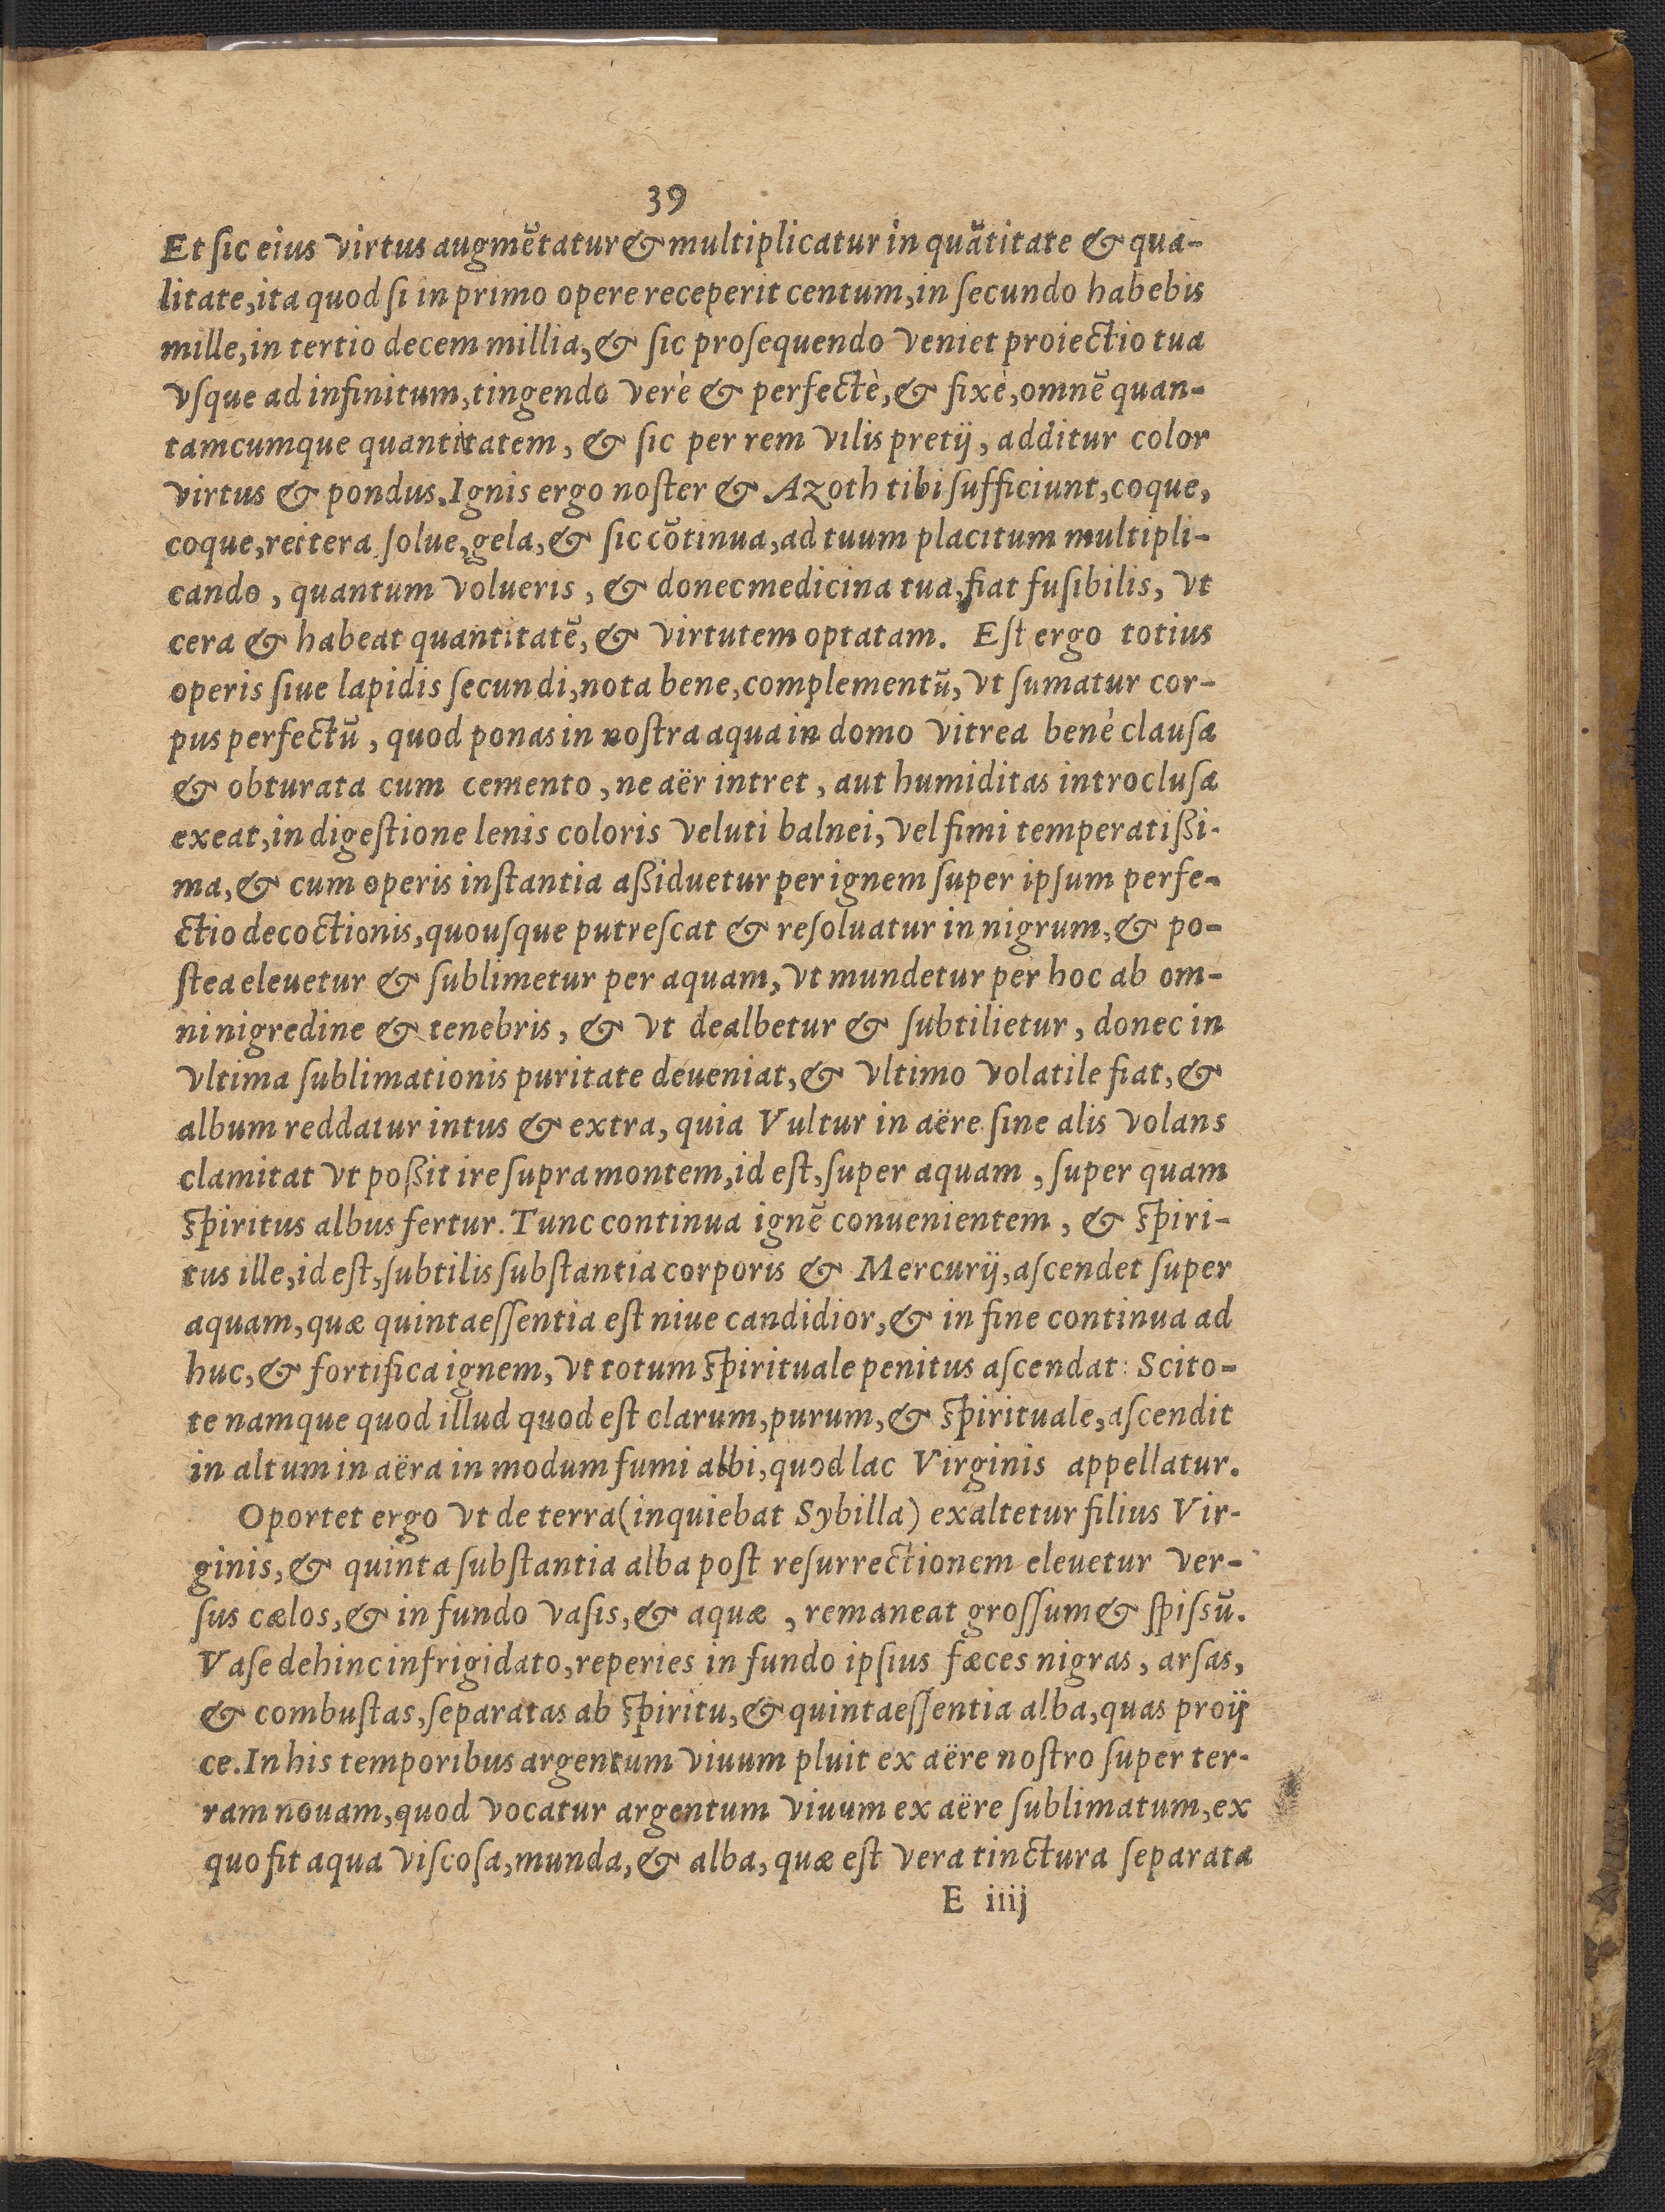 39
Et ſic eius virtus augmētatur & multiplicatur in quātitate & qua-
litate, ita quod ſi in primo opere receperit centum, in ſecundo habebis
mille, in tertio decem millia, & ſic proſequendo veniet proiectio tua
vſque ad infinitum, tingendo verè & perfectè, & fixè, omnē quan-
tamcumque quantitatem, & ſic per rem vilis pretij, additur color
virtus & pondus. Ignis ergo noſter & Azoth tibi ſufficiunt, coque,
coque, reitera ſolue, gela, & ſic cōtinua, ad tuum placitum multipli-
cando, quantum volueris, & donec medicina tua, fiat fuſibilis, vt
cera & habeat quantitatē, & virtutem optatam. Eſt ergo totius
operis ſiue lapidis ſecundi, nota bene, complementū, vt ſumatur cor-
pus perfectū, quod ponas in noſtra aqua in domo vitrea benè clauſa
& obturata cum cemento, ne aër intret, aut humiditas introcluſa
exeat, in digeſtione lenis coloris veluti balnei, vel fimi temperatißi-
ma, & cum operis inſtantia aßiduetur per ignem ſuper ipſum perfe-
ctio decoctionis, quouſque putreſcat & reſoluatur in nigrum, & po-
ſtea eleuetur & ſublimetur per aquam, vt mundetur per hoc ab om-
ni nigredine & tenebris, & vt dealbetur & ſubtilietur, donec in
vltima ſublimationis puritate deueniat, & vltimo volatile fiat, &
album reddatur intus & extra, quia Vultur in aëre ſine alis volans
clamitat vt poßit ire ſupra montem, id eſt, ſuper aquam, ſuper quam
ſpiritus albus fertur. Tunc continua ignē conuenientem, & ſpiri-
tus ille, id eſt, ſubtilis ſubſtantia corporis & Mercurij, aſcendet ſuper
aquam, quæ quintaeſſentia eſt niue candidior, & in fine continua ad
huc, & fortifica ignem, vt totum ſpirituale penitus aſcendat: Scito-
te namque quod illud quod eſt clarum, purum, & ſpirituale, aſcendit
in altum in aëra in modum fumi albi, quod lac Virginis appellatur.
Oportet ergo vt de terra (inquiebat Sybilla) exaltetur filius Vir-
ginis, & quinta ſubſtantia alba poſt reſurrectionem eleuetur ver-
ſus cælos, & in fundo vaſis, & aquæ, remaneat groſſum & ſpiſsū.
Vaſe dehinc infrigidato, reperies in fundo ipſius fæces nigras, arſas,
& combuſtas, ſeparatas ab ſpiritu, & quintaeſſentia alba, quas proij
ce. In his temporibus argentum viuum pluit ex aëre noſtro ſuper ter-
ram nouam, quod vocatur argentum viuum ex aëre ſublimatum, ex
quo fit aqua viſcoſa, munda, & alba, quæ eſt vera tinctura ſeparata
E iiij